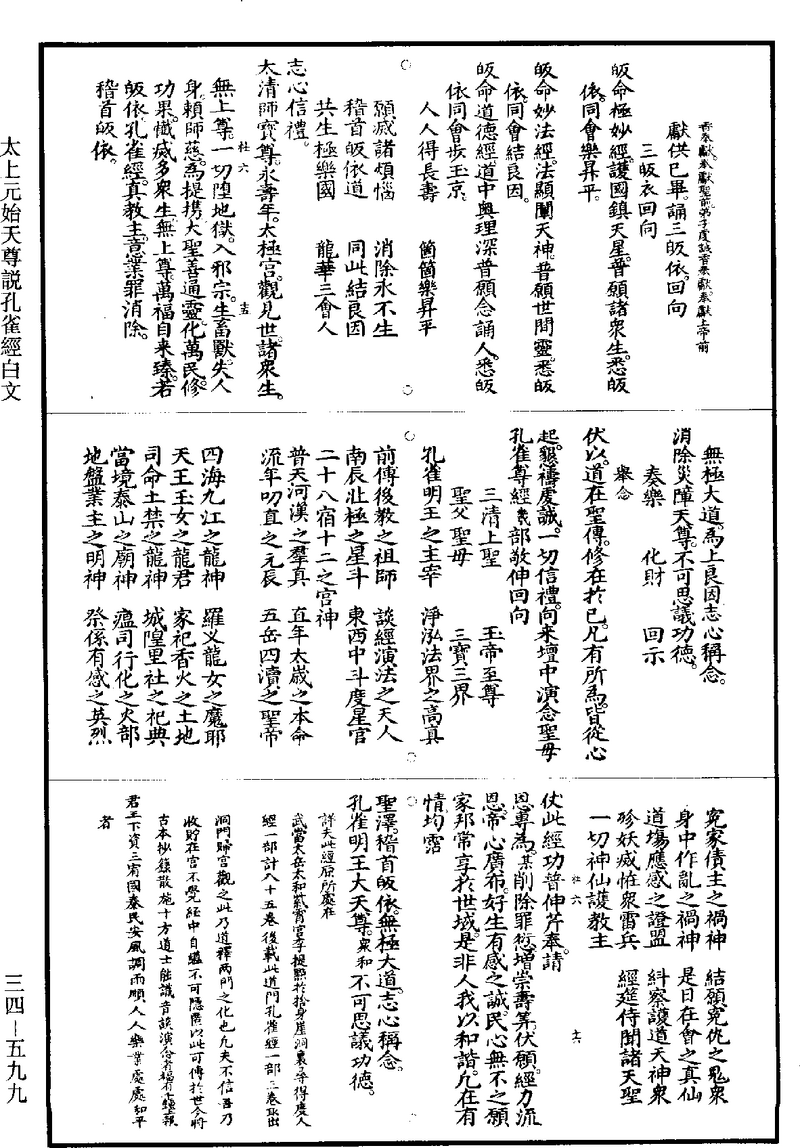 香奉獻。奉獻聖前弟子虔誠香奉獻奉獻上帝前
獻供已畢。誦三皈依。回向
三皈衣回向
皈命極妙經。護國鎮天星。普願諸衆生。悉皈
依。同會樂昇平。
皈命妙法經。法顯闡天神。普願世間靈。悉皈
依。同會結良因。
皈命道德經道中奧理深普願念誦人。悉皈
依同會步玉京。
人人得長壽　箇箇樂昇平
願滅諸煩惱　消除永不生
稽首皈依道　同此結良因
共生極樂國　龍華三會人
志心信禮。
太清師寶尊。永壽年。太極宮。觀見世。諸衆生。
無上尊。一切隍地獄。入邪宗。生畜獸。失人
身。賴師慈。爲提携大聖善通靈。化萬民。修
功果。懺滅多衆生。無上尊萬福自来臻。若
皈依孔雀經。真教主。意業罪消除。
稽首皈依。
無極大道。爲上良因志心稱念。
消除災障天尊。不可思議功德。
奏樂　化財　回示
舉念
伏以。道在聖傳。修在於已。凡有所爲。皆從心
起。懇禱虔誠。一切信禮。向来壇中演念聖母
孔雀尊經幾部敬伸回向
三清上聖　玉帝至尊
聖父聖母　三寶三界
孔雀明王之主宰　淨泓法界之高真
前傳後教之祖師　談經演法之天人
南辰北極之星斗　東西中斗度星官
二十八宿十二之宮神
普天河漢之羣真　直年太歲之本命
流年叨直之元辰　五岳四瀆之聖帝
四海九江之龍神　羅义龍女之魔耶
天王玉女之龍君　家祀香火之土地
司命土禁之龍神　城隍里社之祀典
當境泰山之廟神　瘟司行化之火部
地盤業主之明神　祭係有感之英烈
寃家債主之禍神　結願寃仇之鬼衆
身中作亂之禍神　是日在會之真仙
道場應感之證盟　糾察護道天神衆
殄妖滅恠衆雷兵　經筵侍聞諸天聖
一切神仙護教主
仗此經功普伸芹奉。請
恩專爲。某削除罪愆。增崇壽筭。伏願。經力流
恩。帝心廣布。好生有感之誠。民心無不之願
家邦常享於世域。是非人我以和諧。凡在有
情均霑
聖澤。稽首皈依。無極大道。志心稱念。
孔雀明王大天尊。衆和不可思議功德。
詳夫此經原所處在
武當太岳太和紫霄宮李提點於捨身崖洞裏尋得度人
經一部計八十五卷後載此道門孔雀經一部三卷取出
洞門歸宮觀之此乃道釋两門之化也凢夫不信吾乃
收貯在宮不覺經中自繼不可隱匿以此可傳於世今將
古本抄錄散施十方道士能識音誦演念者福有所報
君王下資三宥國泰民安風調雨順人人樂業處處和平
者
太上元始天尊説孔雀經白文
三四—五九九